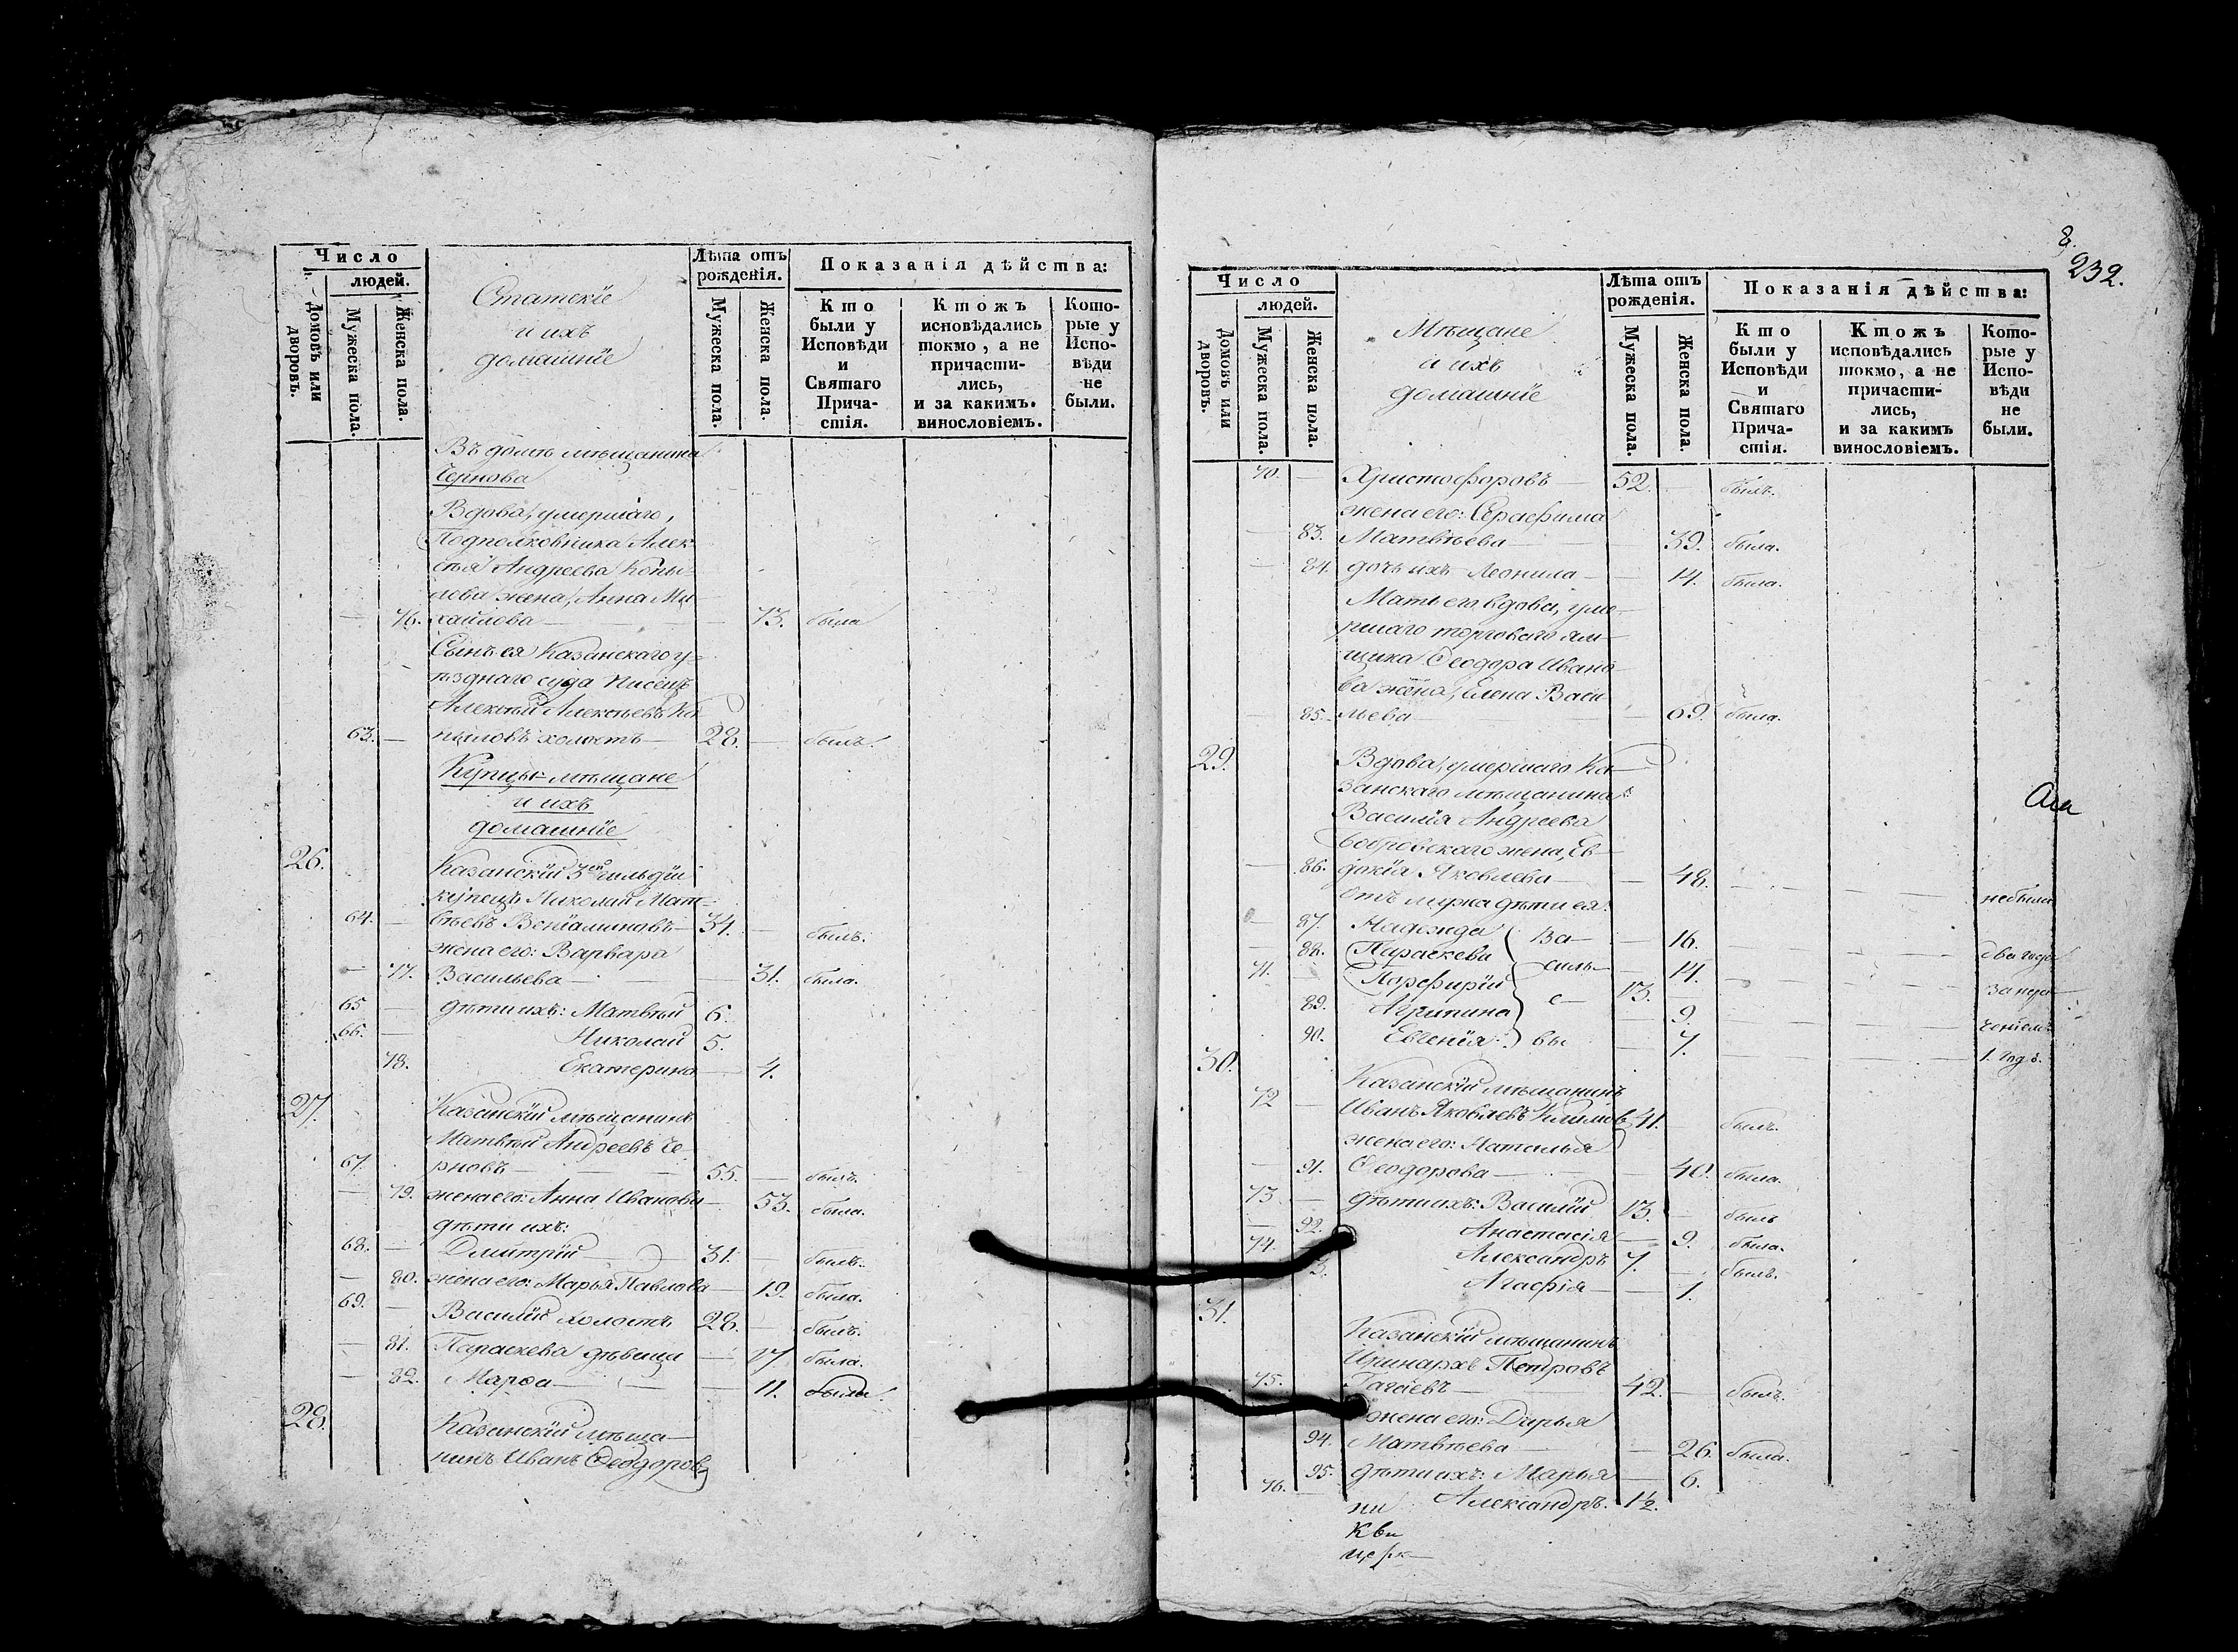 Число
людей.
Домовъ или дворовъ.
Мужеска пола.
Женска пола.
Статскіе
и ихъ
домашніе
Лѣта отъ рожденія.
Мужеска пола.
Женска пола.
Показанія дѣйства:
Кто были у Исповѣди и Святаго Причастія.
Ктожъ исповѣдались токмо, а не причастились, и за какимъ. винословіемъ.
Которые у Исповѣди не были.
Въ домѣ мѣщанина
Чернова
Вдова, умершаго,
Подполковника Алек
сѣя Андреева Копы-
лова жена, Анна Ми-
— 76. хайлова — — 73. была
Сынъ ея Казанскаго у-
ѣзднаго суда Писецъ
Алексѣй Алексѣевъ Ко
63. — пыловъ холостъ — 28. — былъ.
Купцы мѣщане
и ихъ
домашніе
26. Казанскій 3ей гильдіи
купецъ Николай Мат-
64. — вѣевъ Веніаминовъ — 34. — былъ.
жена его: Варвара
— 77. Васильева — — 31. была.
65 — дѣти ихъ: Матвѣй 6.
66. — Николай 5.
78. Екатерина — 4.
27. Казанскій мѣщанинъ
Матвѣй Андреевъ Че
67. рновъ — 55. — былъ.
— 79. жена его: Анна Иванова — 53. была.
дѣти ихъ:
68. — Дмитрій — 31. — былъ.
— 80. жена его: Марья Павлова — 19. была.
69. — Василій холостъ 28. — былъ.
— 81. Параскева дѣвица — 17 была.
— 82. Марѳа — — 11. была.
28. Казанскій мѣща—
нинъ Иванъ Ѳеодоровъ
8.
232.
Число
людей.
Домовъ или дворовъ.
Мужеска пола.
Женска пола.
Мѣщане
и ихъ
домашніе
Лѣта отъ рожденія.
Мужеска пола.
Женска пола
Показанія дѣйства:
Кто были у Исповѣди и Святаго Причастія.
Ктожъ исповѣдались токмо, а не причастились, и за какимъ винословіемъ.
Которые у Исповѣди не были.
70. — Христофоровъ — 52. — былъ.
жена его: Серафима
— 83. Матвѣева — — 39. была.
— 84. дочь ихъ Леонила — — 14. была.
Мать его вдова, уме-
ршаго торговаго ям-
щика Ѳеодора Ивано
ва жена, Елена Васи
— 85. льева — — 69. была.
29. Вдова, умершаго Ка-
занскаго мѣщанина
Василія Андреева
Бобровскаго жена, Ев-
— 86. докія Яковлева — — 48. — небыли
отъ мужа дѣти ея:
87. Надежда Ва— — 16.
— 88. Параскева силь— — 14. — два года
71. — Порфирій е— 13. — за нера
89. Агрипина — 9. — ченіемъ
90. Евгенія вы — 7. — 1. год.
30. Казанскій мѣщанинъ
72 — Иванъ Яковлевъ Климов 41. былъ.
жена его: Наталья
— 91. Ѳеодорова — — 40. была.
73. — дѣти ихъ: Василій 13. — былъ
— 92. Анастасія — 9. была.
74. Александръ 7. — былъ.
3. Агафія — — 1.
31. Казанскій мѣщанинъ
Иринархъ Петровъ
75. Гагаевъ — 42. — былъ.
жена его: Дарья
94. Матвѣева — — 26. была.
95. дѣти ихъ: Марья — 6.
76. — Александръ. 1½.